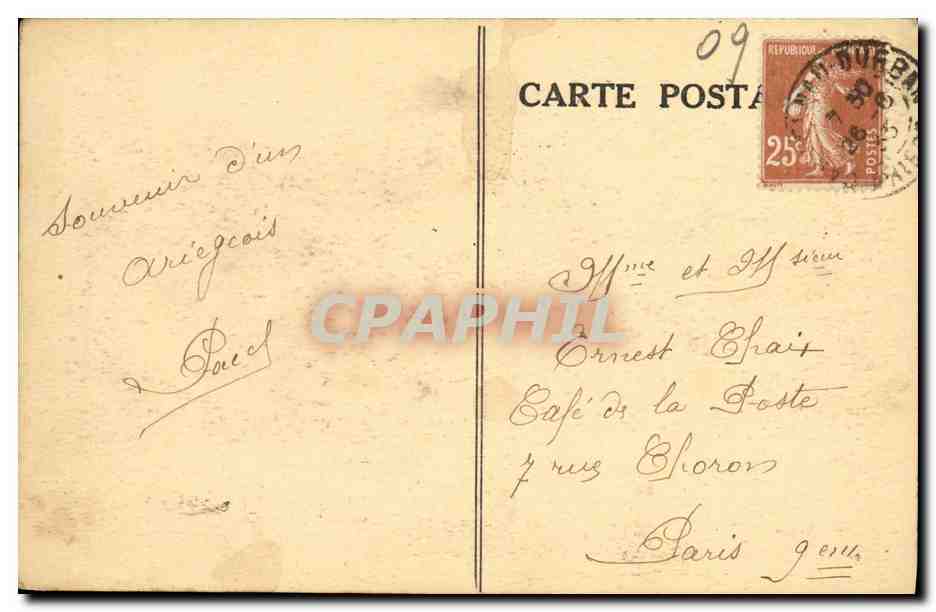 09
CARTE POSTA
REPUBLIQUE
25c
POSTES
DURBAN
Souvenir d'un
ariegeois
Paul
Mme et Msieur
Ernest Chaix
Café de la Poste
7 rue Choron
Paris 9eme
CPAPHIL